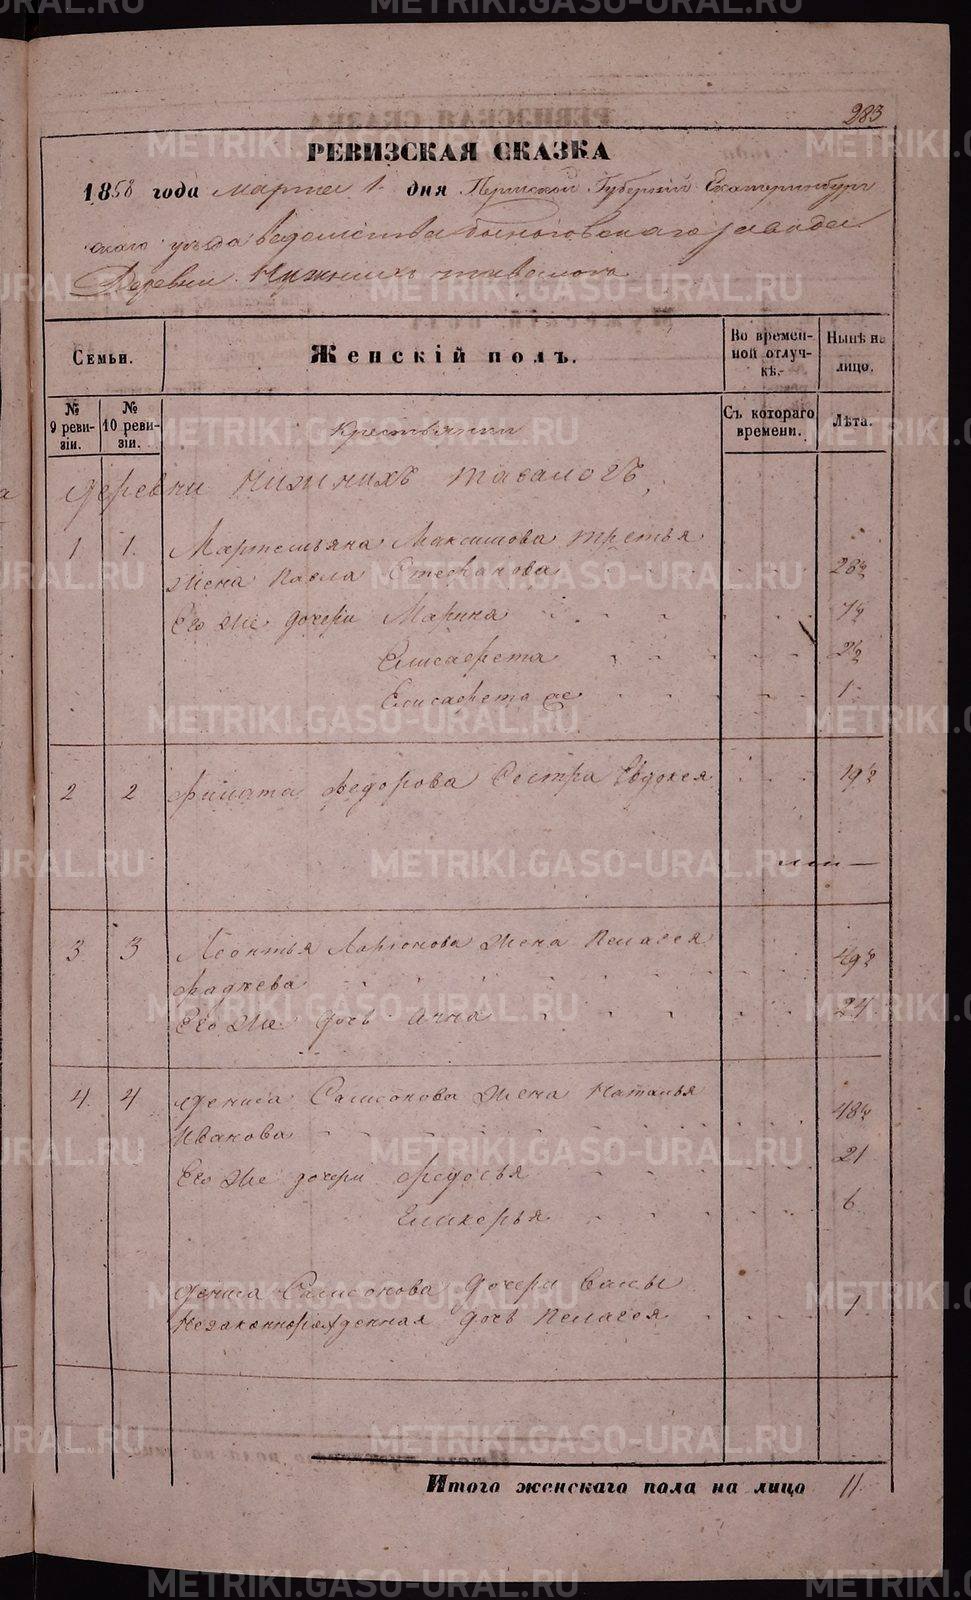 283
РЕВИЗСКАЯ СКАЗКА
1858 года марта 1 дня Пермской Губернiи Екатеринбург
скаго уезда ведомства завода
Деревни Нижнихъ тавологъ
Семьи. Женскій полъ. Во временной отлучкѣ. Нынѣ на лицо.
№ 9 ревизіи. № 10 ревизіи. Крестьянки Съ котораго времени. Лѣта.
деревни нижнихъ тавологъ,
1. 1. Мартемьяна Максимова третья
жена Павла Степанова 28½
Его же дочери Марина 7½
Елисавета 2½
Елисавета ж 1
2 2 Филата Федорова Сестра Евдокея 19½
3. 3 Леонтья Ларионова жена Пелагея
Фадѣева 49½
Его же дочь Анна 24
4. 4 Дениса Самсонова жена Наталья
Иванова 48½
Его же дочери Федосья 21
Гликерья 6
Дениса Самсонова дочери
Незаконнорожденная дочь Пелагея 1
Итого женскаго пола на лицо 11
METRIKI.GASO-URAL.RU